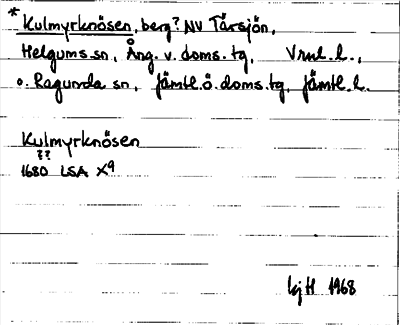 * Kulmyrknösen, berg? NV Tärsjön,
Helgums sn, Ång. v. doms. tg, Vrnl. l.,
o. Ragunda sn, Jämtl. ö. doms. tg, Jämtl. l.
Kulmyrknösen
??
1680 LSA X9
1968